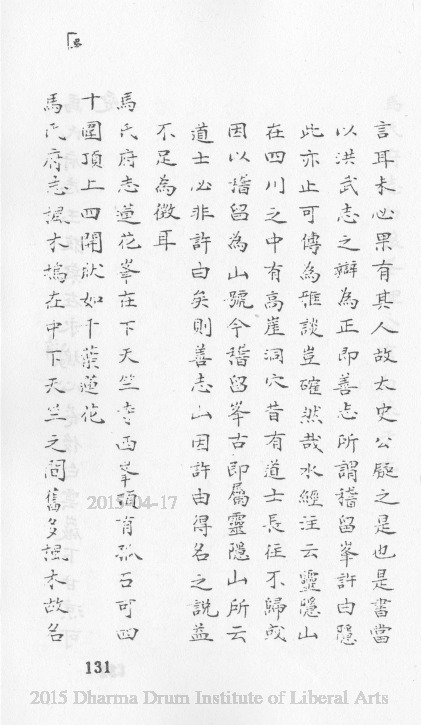 言耳未必果有其人故太史公疑之是也是書當
以洪武志之辯為正即善志所謂稽留峯許由隱
此亦止可傳為雅談豈確然哉水經注云靈隱山
在四川之中有高崖洞穴昔有道士長往不歸或
因以稽留為山號今稽留峯古即屬靈隱山所云
道士必非許由矣則善志山因許由得名之說益
不足為徵耳
馬氏府志蓮花峯在下天竺寺西峯頂有孤石可四
十圍頂上四開狀如千葉蓮花
馬氏府志楓木塢在中下天竺之間舊多楓木故名
131
2015-04-17
2015 Dharma Drum Institute of Liberal Arts